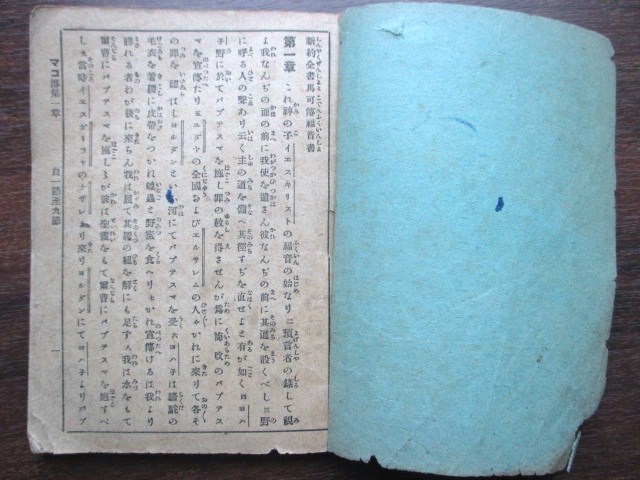 新約全書馬可傳福音書
第一章 これ神の子イエスキリストの福音の始なり二預言者の錄して視
よ我なんぢの面の前に我使を遣さん彼なんぢの前に其道を設くべし三野
に呼る人の聲あり云く主の道を備へ其徑すぢを直せよと有が如く四ヨハ
子野に於てバプテスマを施し罪の赦を得させんが爲に悔改のバプテス
マを宣傳たり五ユダヤの全國およびエルサレムの人々かれに來りて各その
の罪を認はしヨルダンといふ河にてバプテスマを受六ヨハ子は駱駝の
毛衣を着腰に皮帶をつかね蝗蟲と野蜜を食へり七かれ宣傳けるは我より
勝れる者わが後に來らん我は屈て其履の紐を解にも足ず八我は水をもて
爾曹にバプテスマを施しゝが彼は聖靈をもて爾曹にバプテスマを施すべ
し九當時イエスガリラヤのナザレより來りヨルダンにてヨハ子よりバプ
マコ傳第一章 自一節至九節 一